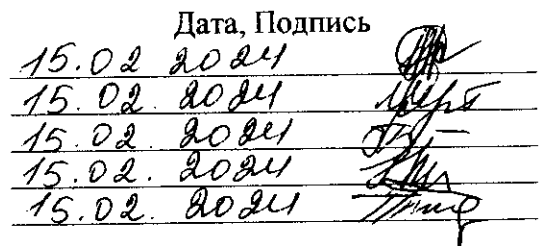 Дата, Подпись
15.02 2024
15.02. 2024
15.02. 2024
15.02. 2024
15.02. 2024